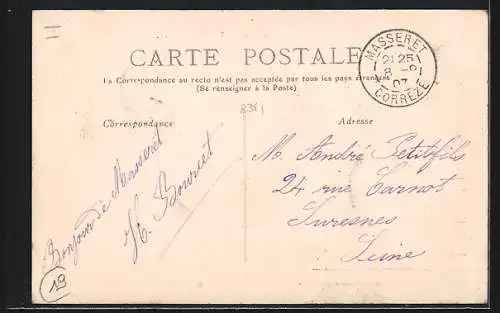 CARTE POSTALE
La Correspondance au recto n'est pas acceptée par tous les pays étrangers
(Se renseigner à la Poste)
MASSERET
21 25
8 - 9
07
CORRÈZE
Correspondance
Adresse
Bonjour de Masseret
M. André Petitfils
24 rue Carnot
Suresnes
Seine
19